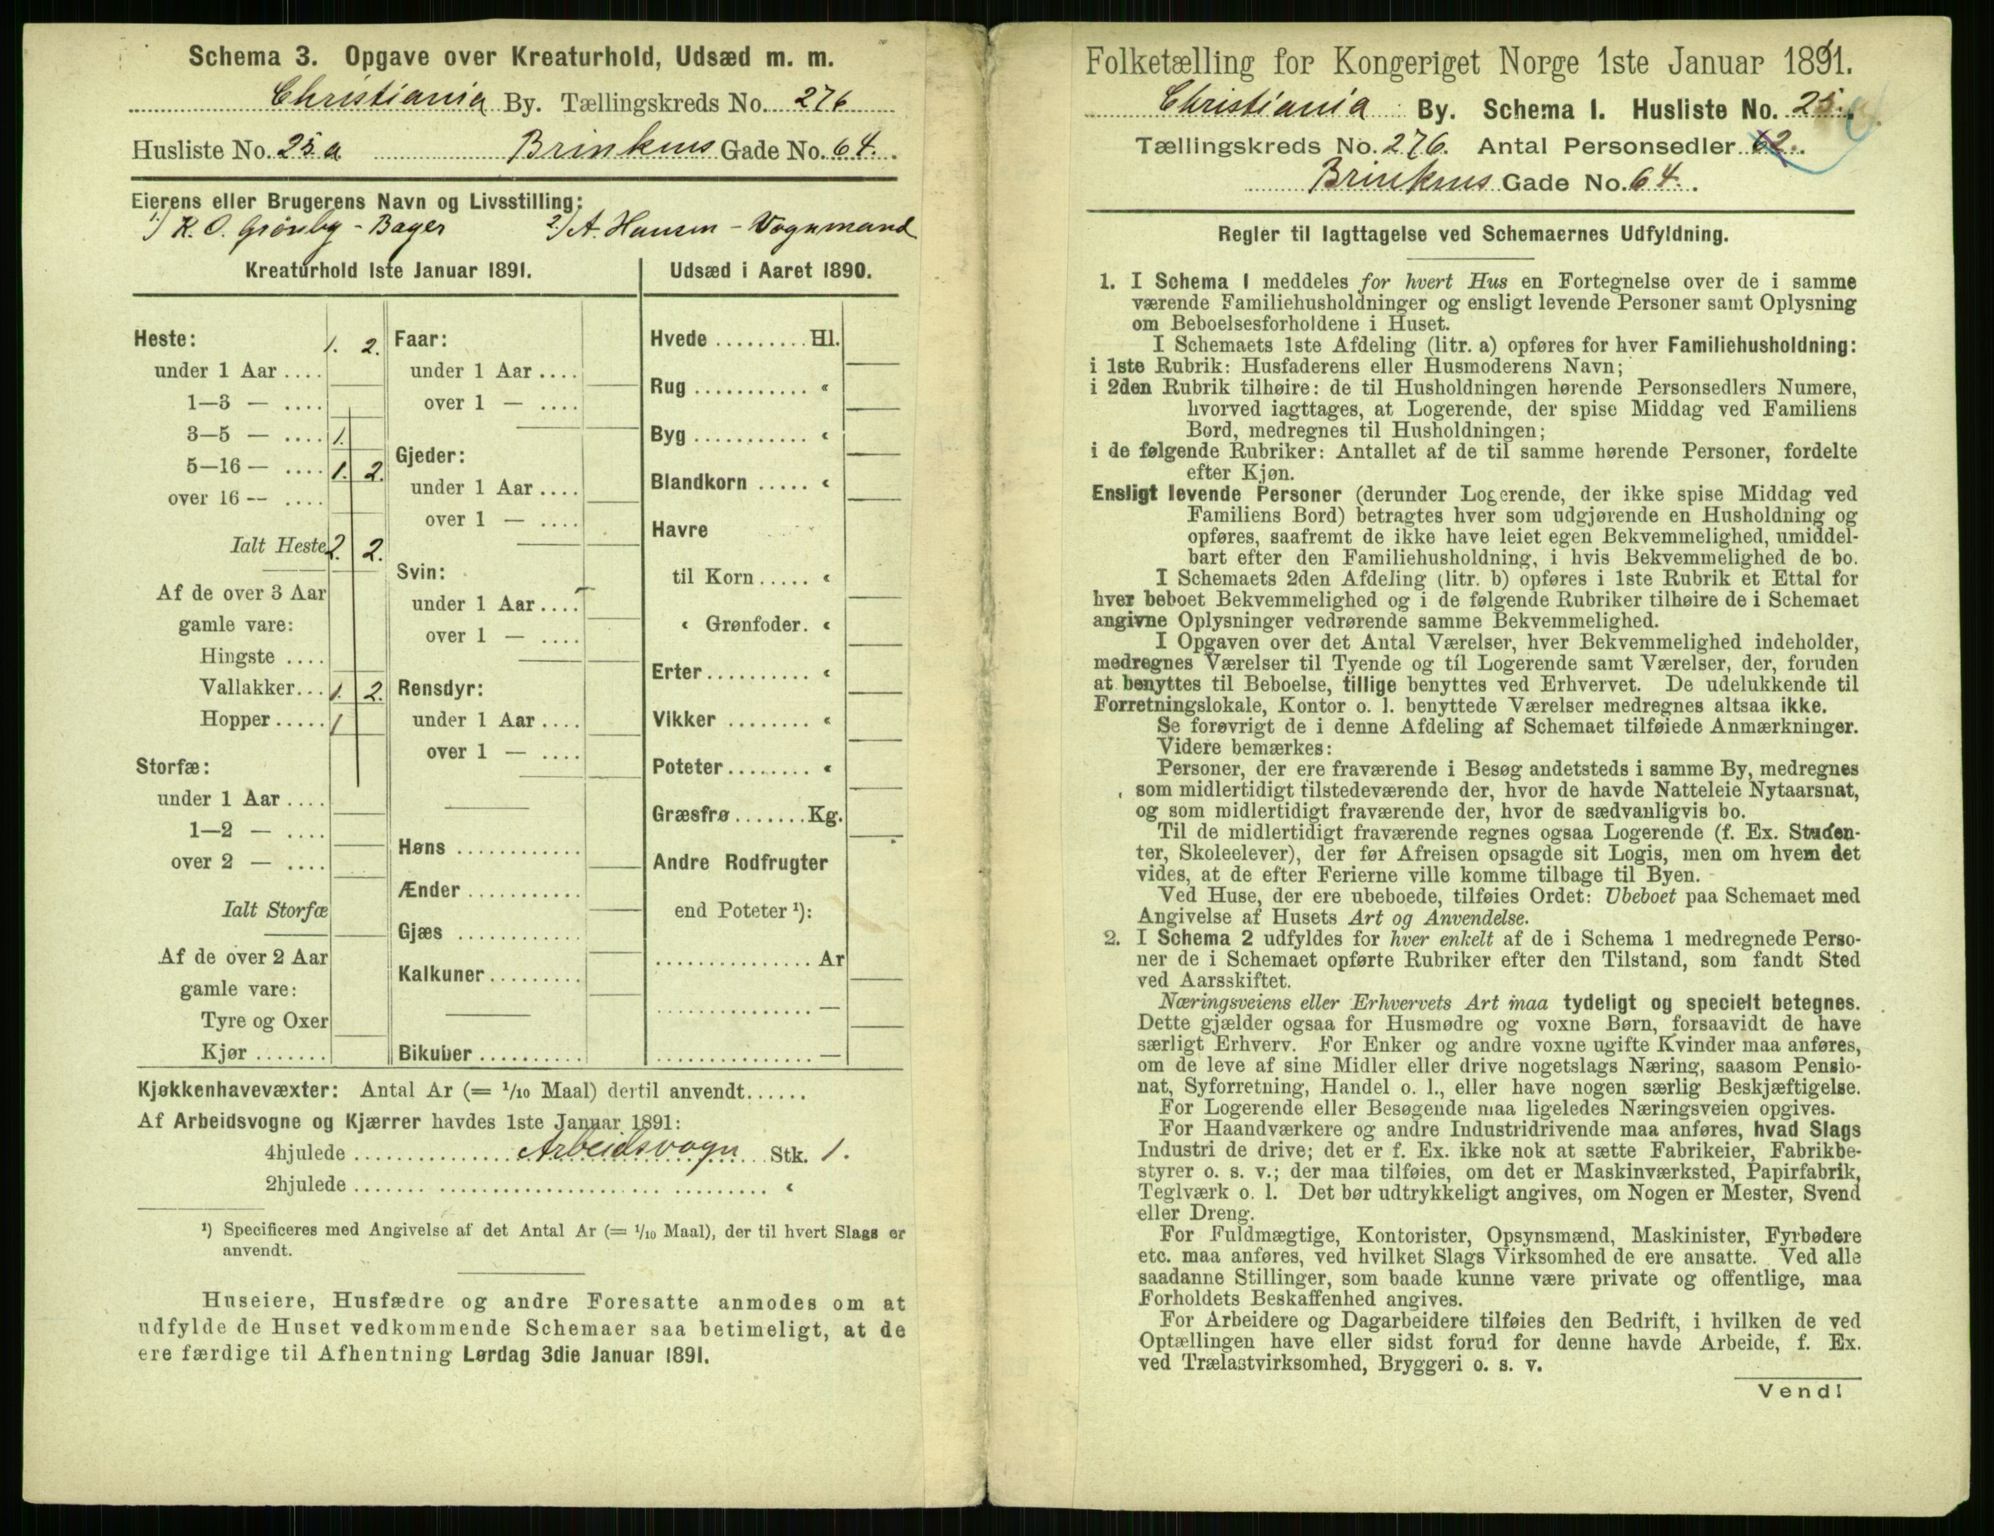 Schema 3. Opgave over Kreaturhold, Udsæd m. m.
Christiania By. Tællingskreds No. 276
Husliste No. 25a Brinkens Gade No. 64.
Eierens eller Brugerens Navn og Livsstilling:
1) K. O. Grønby - Bager 2) A. Hansen - Vognmand
Kreaturhold 1ste Januar 1891. Udsæd i Aaret 1890.
Heste: 1. 2.
under 1 Aar ....
1—3 — ....
3—5 — .... 1.
5—16 — .... 1. 2.
over 16 — ....
Ialt Heste 2. 2.
Af de over 3 Aar
gamle vare:
Hingste ....
Vallakker... 1. 2.
Hopper ..... 1
Storfæ:
under 1 Aar ....
1—2 — ....
over 2 — ....
Ialt Storfæ
Af de over 2 Aar
gamle vare:
Tyre og Oxer
Kjør .......
Faar:
under 1 Aar ....
over 1 — ....
Gjeder:
under 1 Aar ....
over 1 — ....
Svin:
under 1 Aar ....
over 1 — ....
Rensdyr:
under 1 Aar ....
over 1 — ....
Høns ............
Ænder ...........
Gjæs ............
Kalkuner.........
Bikuber..........
Hvede ......... Hl.
Rug ........... «
Byg ........... «
Blandkorn ..... «
Havre
til Korn..... «
« Grønfoder. «
Erter.......... «
Vikker ........ «
Poteter........ «
Græsfrø ....... Kg.
Andre Rodfrugter
end Poteter ¹):
............... Ar
............... —
............... —
Kjøkkenhavevæxter: Antal Ar (= 1/10 Maal) dertil anvendt......
Af Arbeidsvogne og Kjærrer havdes 1ste Januar 1891:
4hjulede .............. Arbeidsvogn Stk. 1.
2hjulede .............. «
¹) Specificeres med Angivelse af det Antal Ar (= 1/10 Maal), der til hvert Slags er
anvendt.
Huseiere, Husfædre og andre Foresatte anmodes om at
udfylde de Huset vedkommende Schemaer saa betimeligt, at de
ere færdige til Afhentning Lørdag 3die Januar 1891.
Folketælling for Kongeriget Norge 1ste Januar 1891.
Christiania By. Schema 1. Husliste No. 25a.
Tællingskreds No. 276. Antal Personsedler 62.
Brinkens Gade No. 64.
Regler til Iagttagelse ved Schemaernes Udfyldning.
1. I Schema 1 meddeles for hvert Hus en Fortegnelse over de i samme
værende Familiehusholdninger og ensligt levende Personer samt Oplysning
om Beboelsesforholdene i Huset.
I Schemaets 1ste Afdeling (litr. a) opføres for hver Familiehusholdning:
i 1ste Rubrik: Husfaderens eller Husmoderens Navn;
i 2den Rubrik tilhøire: de til Husholdningen hørende Personsedlers Numere,
hvorved iagttages, at Logerende, der spise Middag ved Familiens
Bord, medregnes til Husholdningen;
i de følgende Rubriker: Antallet af de til samme hørende Personer, fordelte
efter Kjøn.
Ensligt levende Personer (derunder Logerende, der ikke spise Middag ved
Familiens Bord) betragtes hver som udgjørende en Husholdning og
opføres, saafremt de ikke have leiet egen Bekvemmelighed, umiddel-
bart efter den Familiehusholdning, i hvis Bekvemmelighed de bo.
I Schemaets 2den Afdeling (litr. b) opføres i 1ste Rubrik et Ettal for
hver beboet Bekvemmelighed og i de følgende Rubriker tilhøire de i Schemaet
angivne Oplysninger vedrørende samme Bekvemmelighed.
I Opgaven over det Antal Værelser, hver Bekvemmelighed indeholder,
medregnes Værelser til Tyende og til Logerende samt Værelser, der, foruden
at benyttes til Beboelse, tillige benyttes ved Erhvervet. De udelukkende til
Forretningslokale, Kontor o. l. benyttede Værelser medregnes altsaa ikke.
Se forøvrigt de i denne Afdeling af Schemaet tilføiede Anmærkninger.
Videre bemærkes:
Personer, der ere fraværende i Besøg andetsteds i samme By, medregnes
som midlertidigt tilstedeværende der, hvor de havde Natteleie Nytaarsnat,
og som midlertidigt fraværende der, hvor de sædvanligvis bo.
Til de midlertidigt fraværende regnes ogsaa Logerende (f. Ex. Studen-
ter, Skoleelever), der før Afreisen opsagde sit Logis, men om hvem det
vides, at de efter Ferierne ville komme tilbage til Byen.
Ved Huse, der ere ubeboede, tilføies Ordet: Ubeboet paa Schemaet med
Angivelse af Husets Art og Anvendelse.
2. I Schema 2 udfyldes for hver enkelt af de i Schema 1 medregnede Perso-
ner de i Schemaet opførte Rubriker efter den Tilstand, som fandt Sted
ved Aarsskiftet.
Næringsveiens eller Erhvervets Art maa tydeligt og specielt betegnes.
Dette gjælder ogsaa for Husmødre og voxne Børn, forsaavidt de have
særligt Erhverv. For Enker og andre voxne ugifte Kvinder maa anføres,
om de leve af sine Midler eller drive nogetslags Næring, saasom Pensio-
nat, Syforretning, Handel o. l., eller have nogen særlig Beskjæftigelse.
For Logerende eller Besøgende maa ligeledes Næringsveien opgives.
For Haandværkere og andre Industridrivende maa anføres, hvad Slags
Industri de drive; det er f. Ex. ikke nok at sætte Fabrikeier, Fabrikbe-
styrer o. s. v.; der maa tilføies, om det er Maskinværksted, Papirfabrik,
Teglværk o. l. Det bør udtrykkeligt angives, om Nogen er Mester, Svend
eller Dreng.
For Fuldmægtige, Kontorister, Opsynsmænd, Maskinister, Fyrbødere
etc. maa anføres, ved hvilket Slags Virksomhed de ere ansatte. Ved alle
saadanne Stillinger, som baade kunne være private og offentlige, maa
Forholdets Beskaffenhed angives.
For Arbeidere og Dagarbeidere tilføies den Bedrift, i hvilken de ved
Optællingen have eller sidst forud for denne havde Arbeide, f. Ex.
ved Trælastvirksomhed, Bryggeri o. s. v.
Vend!